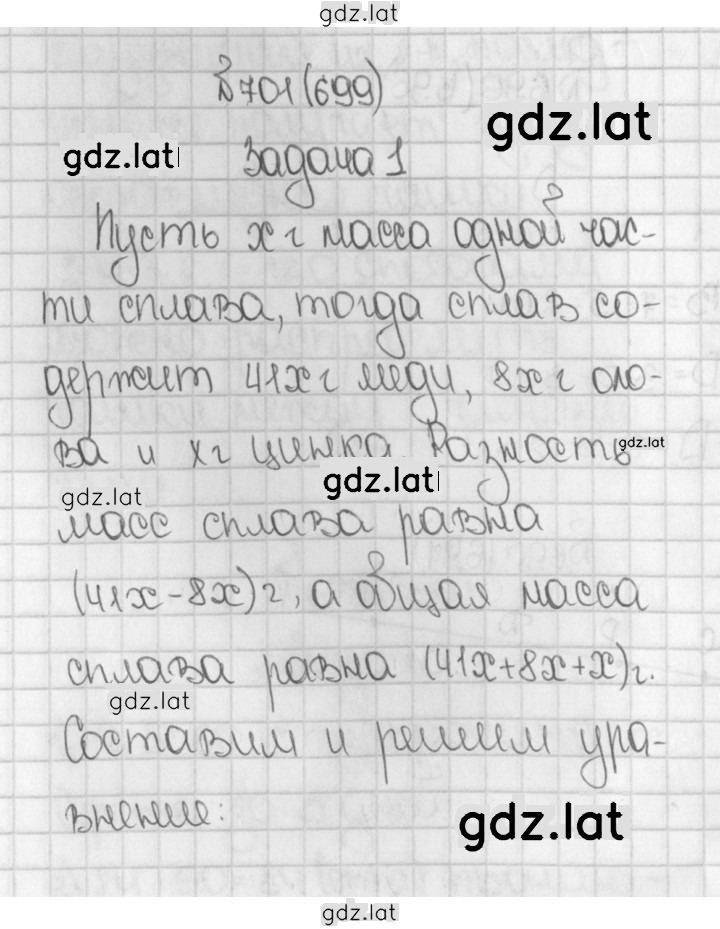 gdz.lat
№701(699)
gdz.lat
gdz.lat
Задача 1
Пусть x г масса одной час-
ти сплава, тогда сплав со-
держит 41x г меди, 8x г оло-
ва и x г цинка. Разность
gdz.lat
gdz.lat
gdz.lat
масс сплава равна
(41x-8x)г, а общая масса
сплава равна (41x+8x+x)г.
gdz.lat
Составим и решим урав-
внение:
gdz.lat
gdz.lat